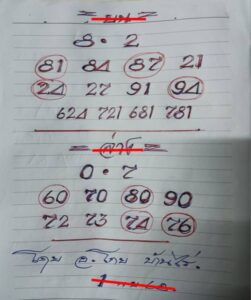 = บน =
8 · 2
81 84 87 21
24 27 91 94
624 721 681 781
= ล่าง =
0 · 7
60 70 80 90
72 73 74 76
โดย อ.โทย บ้านไร่.